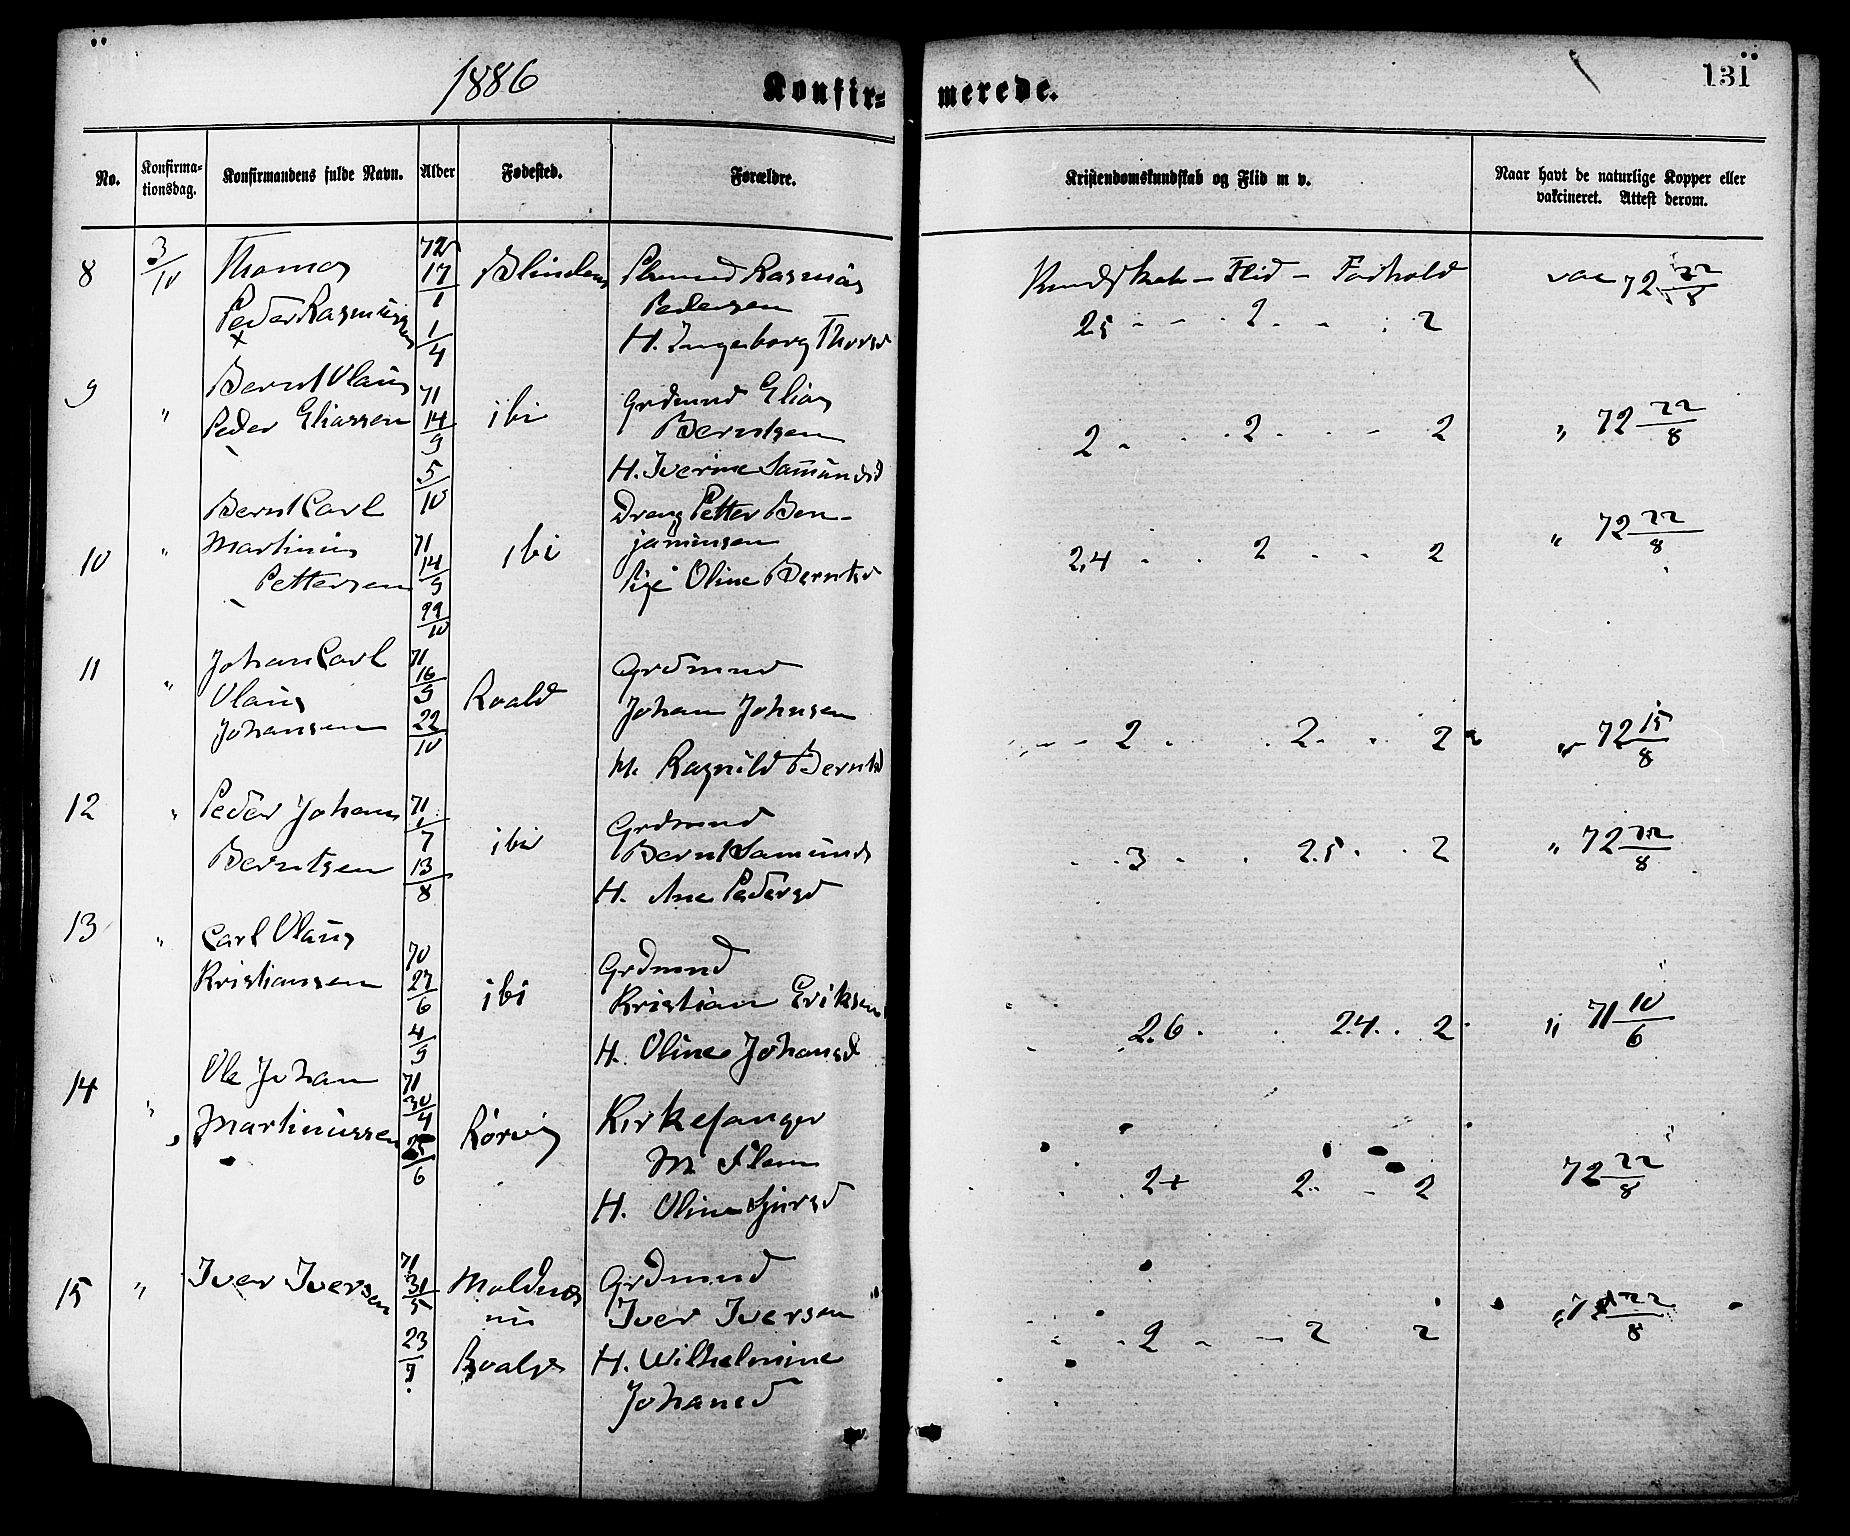 1886
Konfir=
merede.
131
No.
Konfirma-
tionsdag.
Konfirmandens fulde Navn.
Alder
Fødested.
Forældre.
Kristendomskundskab og Flid m v.
Naar havt de naturlige Kopper eller
vakcineret. Attest derom.
8 3/10 Thomas 72 17/1 Blindem Rasmus
Peder Rasmussen 1/4 Pedersen
H. Ingeborg Thorsd
Kundskab - Flid - Forhold vac 72 22/8
25 - - 2 - - 2
9 " Bernt Olaus 71 14/9 ibi Grdmand Elias
Peder Eliassen 5/10 Berntsen
H. Iverine Samundsd
2 - 2 - 2 " 72 22/8
10 " Bernt Carl Dreng Petter Ben-
Martinus 71 14/9 ibi jaminsen
Pettersen 29/10 Pige Oline Berntsd
2,4 - 2 - 2 " 72 22/8
11 " Johan Carl 71 16/9 Roald Grdmand
Olaus 22/10 Johan Johnsen
Johansen
H. Ragnild Berntsd
2 - 2 - 2 " 72 15/8
12 " Peder Johan 71 1/7 ibi Grdmand
Berntsen 13/8 Bernt Samunds
H. Ane Pedersd
3 - 2.5 - 2 " 72 22/8
13 " Carl Olaus 70 27/6 ibi Grdmand
Kristiansen 4/9 Kristian Eriksen
H. Oline Johansd
2.6 - 2.4 - 2 " 71 10/6
14 " Ole Johan 71 30/4 Rørvig Kirkesanger
Martinussen 25/6 M. Flem
H. Oline Sjursd
2+ 2 - 2 72 22/8
15 " Iver Iversen 71 31/5 Moldnæs Grdmand
nu Iver Iversen
23/7 Roalds H. Wilhelmine
Johansd
2 - 2 2 " 72 22/8